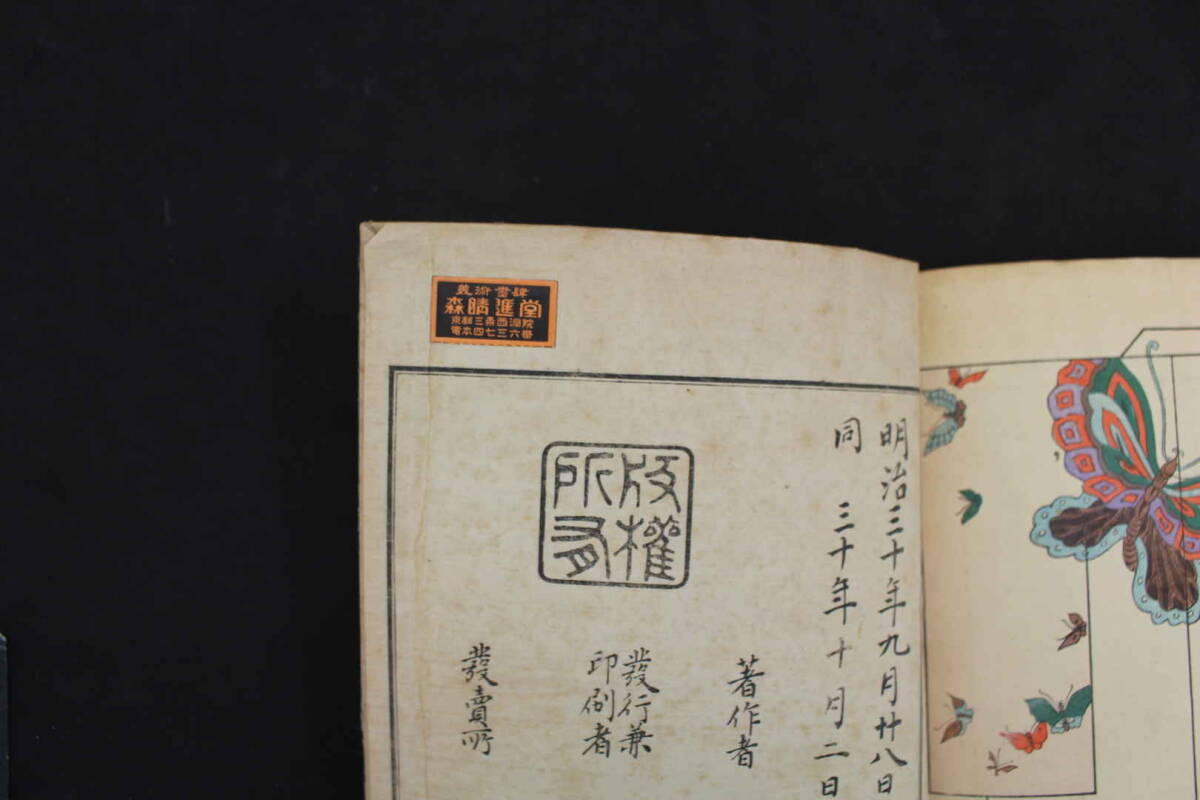 美術書肆
森晴進堂
京都三条西洞院
電本四七三六番
明治三十年九月廿八日
同 三十年十月二日
版權所有
著作者
發行兼
印刷者
發賣所